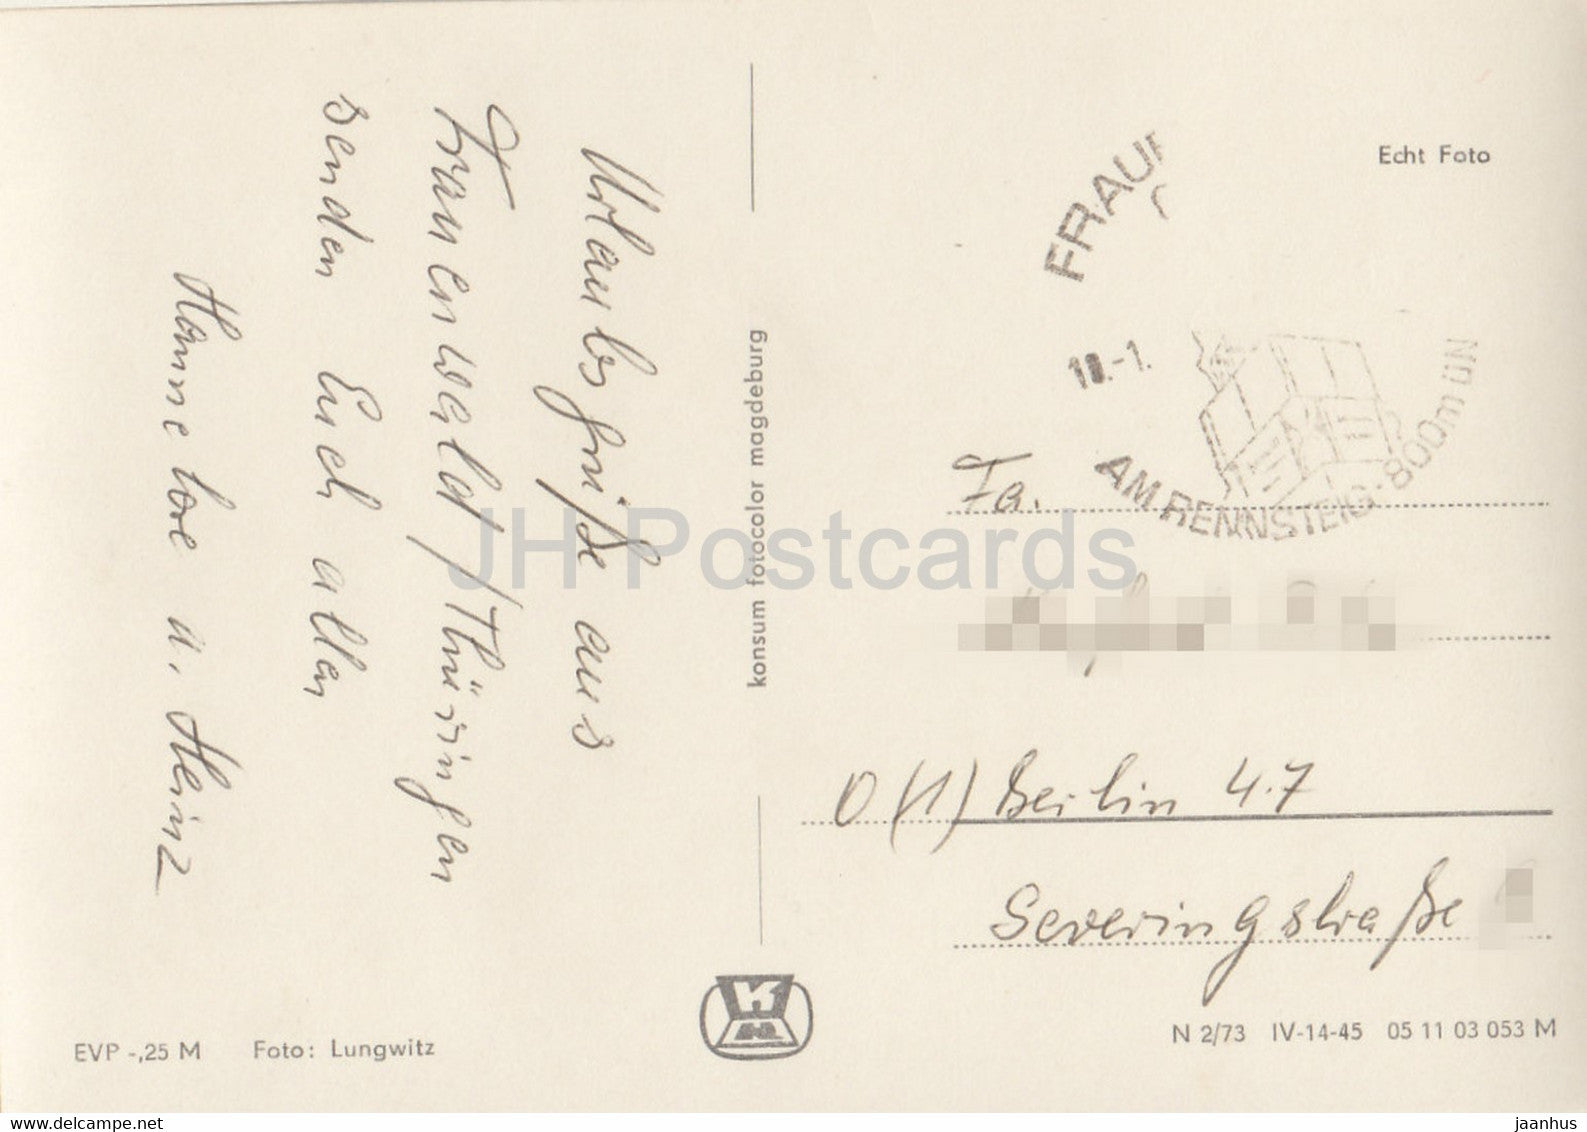 Urlaubsgrüße aus
Frauenwald/Thüringen
senden Euch allen
Hannelore u. Heinz
konsum fotocolor magdeburg
Echt Foto
FRAU
10.-1.
AM RENNSTEIG · 800m ÜN
Fa.
O (1) Berlin 4.7
Severingstraße
EVP -,25 M Foto: Lungwitz
N 2/73 IV-14-45 05 11 03 053 M
JH Postcards
www.delcampe.net
jaanhus